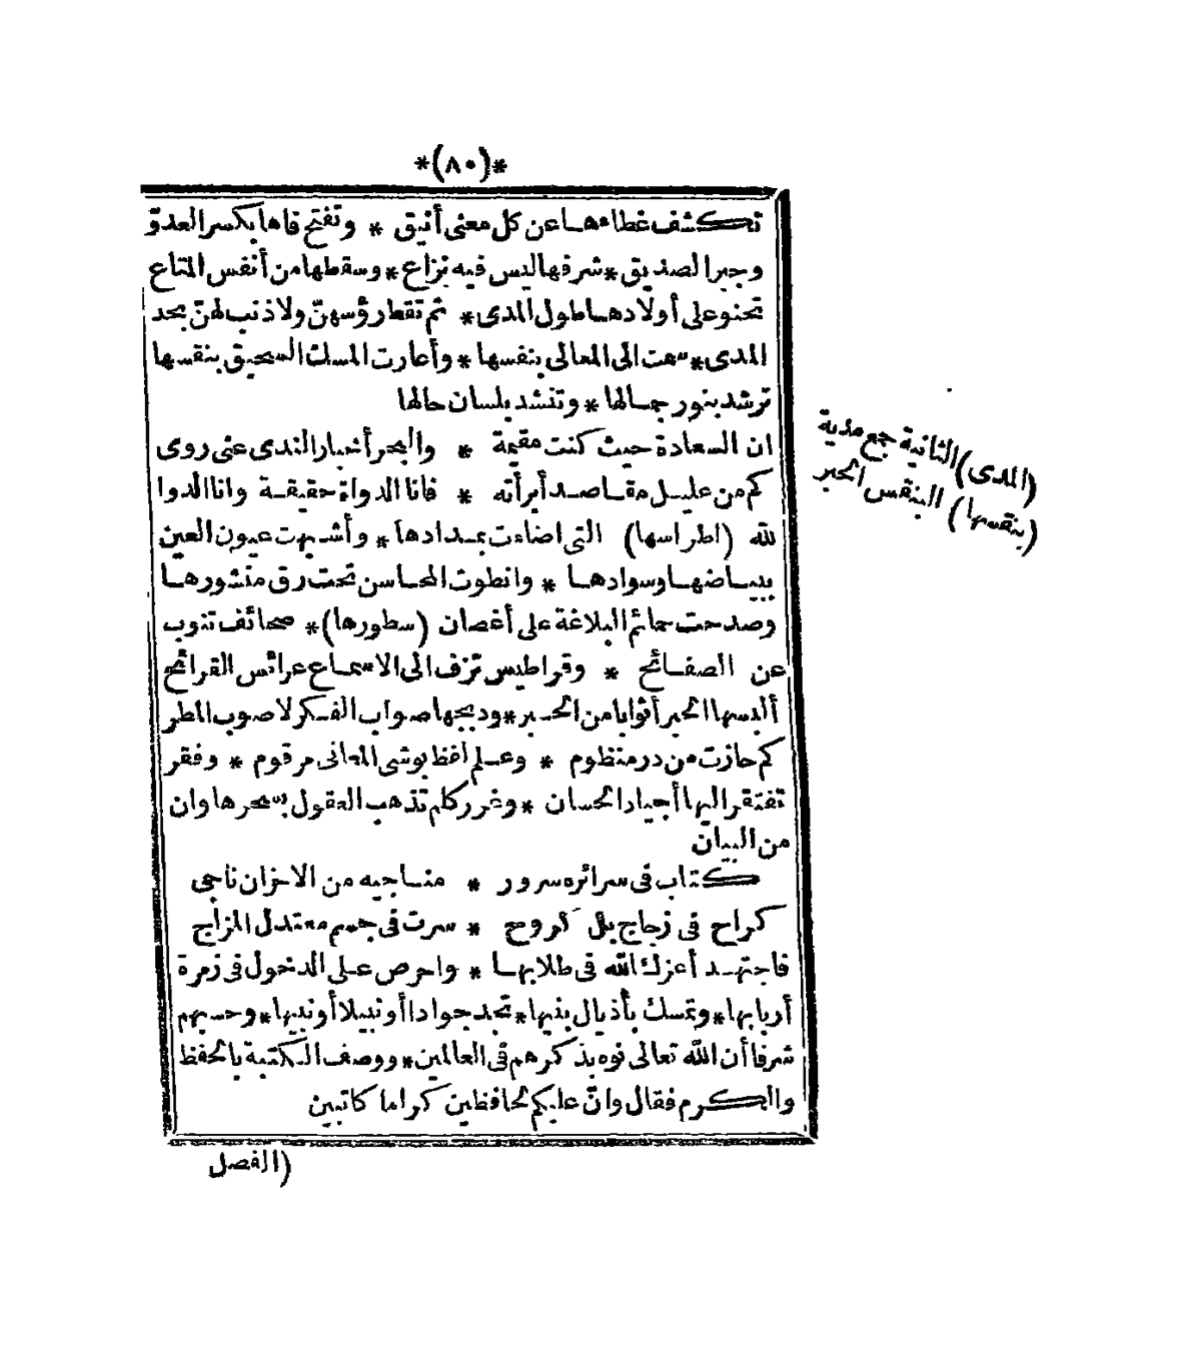 *(٨٠)*
تكشف غطاءها عن كل معنى أنيق * وتفتح فاها بكسر العدوّ
وجبر الصديق * شرفها ليس فيه نزاع * وسقطها من أنفس المتاع
تحنو على أولادها طول المدى * ثم تقط رؤسهنّ ولا ذنب لهنّ بحد
المدى * سمت الى المعالى بنفسها * وأعارت المسك السحيق بنقسها
ترشد بنور جمالها * وتنشد بلسان حالها
ان السعادة حيث كنت مقيمة * والبحر أخبار الندى عنى روى
كم من عليل مقاصد أبرأته * فانا الدواة حقيقة وانا الدوا
لله (اطراسها) التى اضاءت بمدادها * وأشبهت عيون العين
ببياضها وسوادها * وانطوت المحاسن تحت رق منشورها
وصدحت حمائم البلاغة على أغصان (سطورها) * صحائف تنوب
عن الصفائح * وقراطيس تزف الى الاسماع عرائس القرائح
ألبسها الحبر أثوابا من الحبر * ودبجها صواب الفكر لا صوب المطر
كم حازت من در منظوم * وعلم لفظ بوشى المعانى مرقوم * وفقر
تفتقر اليها أجياد الحسان * وغرر كلم تذهب العقول بسحرها وان
من البيان
كتاب فى سرائره سرور * مناجيه من الاحزان ناجى
كراح فى زجاج بل كروح * سرت فى جسم معتدل المزاج
فاجتهد أعزك الله فى طلابها * واحرص على الدخول فى زمرة
أربابها * وتمسك بأذيال بنيها * تجد جوادا أو نبيلا أو نبيها * وحسبهم
شرفا أن الله تعالى نوه بذكرهم فى العالمين * ووصف الكتبة بالحفظ
والكرم فقال وانّ عليكم لحافظين كراما كاتبين
(الفصل
(المدى) الثانية جمع مدية
(بنقسها) النقس الحبر